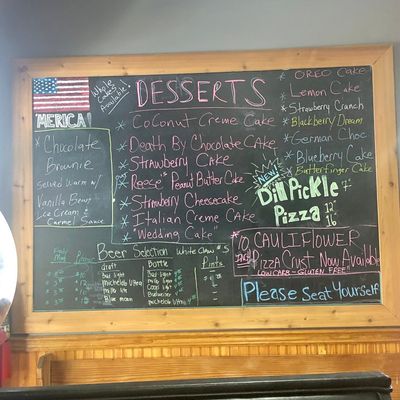 'MERICA!
Whole
Cakes
Available!
DESSERTS
Chocolate
Brownie
Served Warm w/
Vanilla Bean
Ice Cream &
Carmel Sauce
Coconut Creme Cake
Death By Chocolate CAke
Strawberry Cake
Reese's Peanut Butter Cake
Strawberry Cheesecake
Italian Creme CAke
"Wedding Cake"
OREO Cake
Lemon Cake
Strawberry Crunch
Blackberry Dream
German Choc.
Blueberry Cake
Butterfinger Cake
NEW!
Dill Pickle
Pizza
7"
12"
16"
CAULIFLOWER
Pizza Crust Now Available
LOW CARB - GLUTEN FREE!
Please Seat Yourself
Beer Selection
White Claw $5
draft
Bud light
Michelob Ultra
Milo lite
Blue moon
Bottle
Bud light
Milo lite
Coors light
Budweiser
Michelob Ultra
Pints